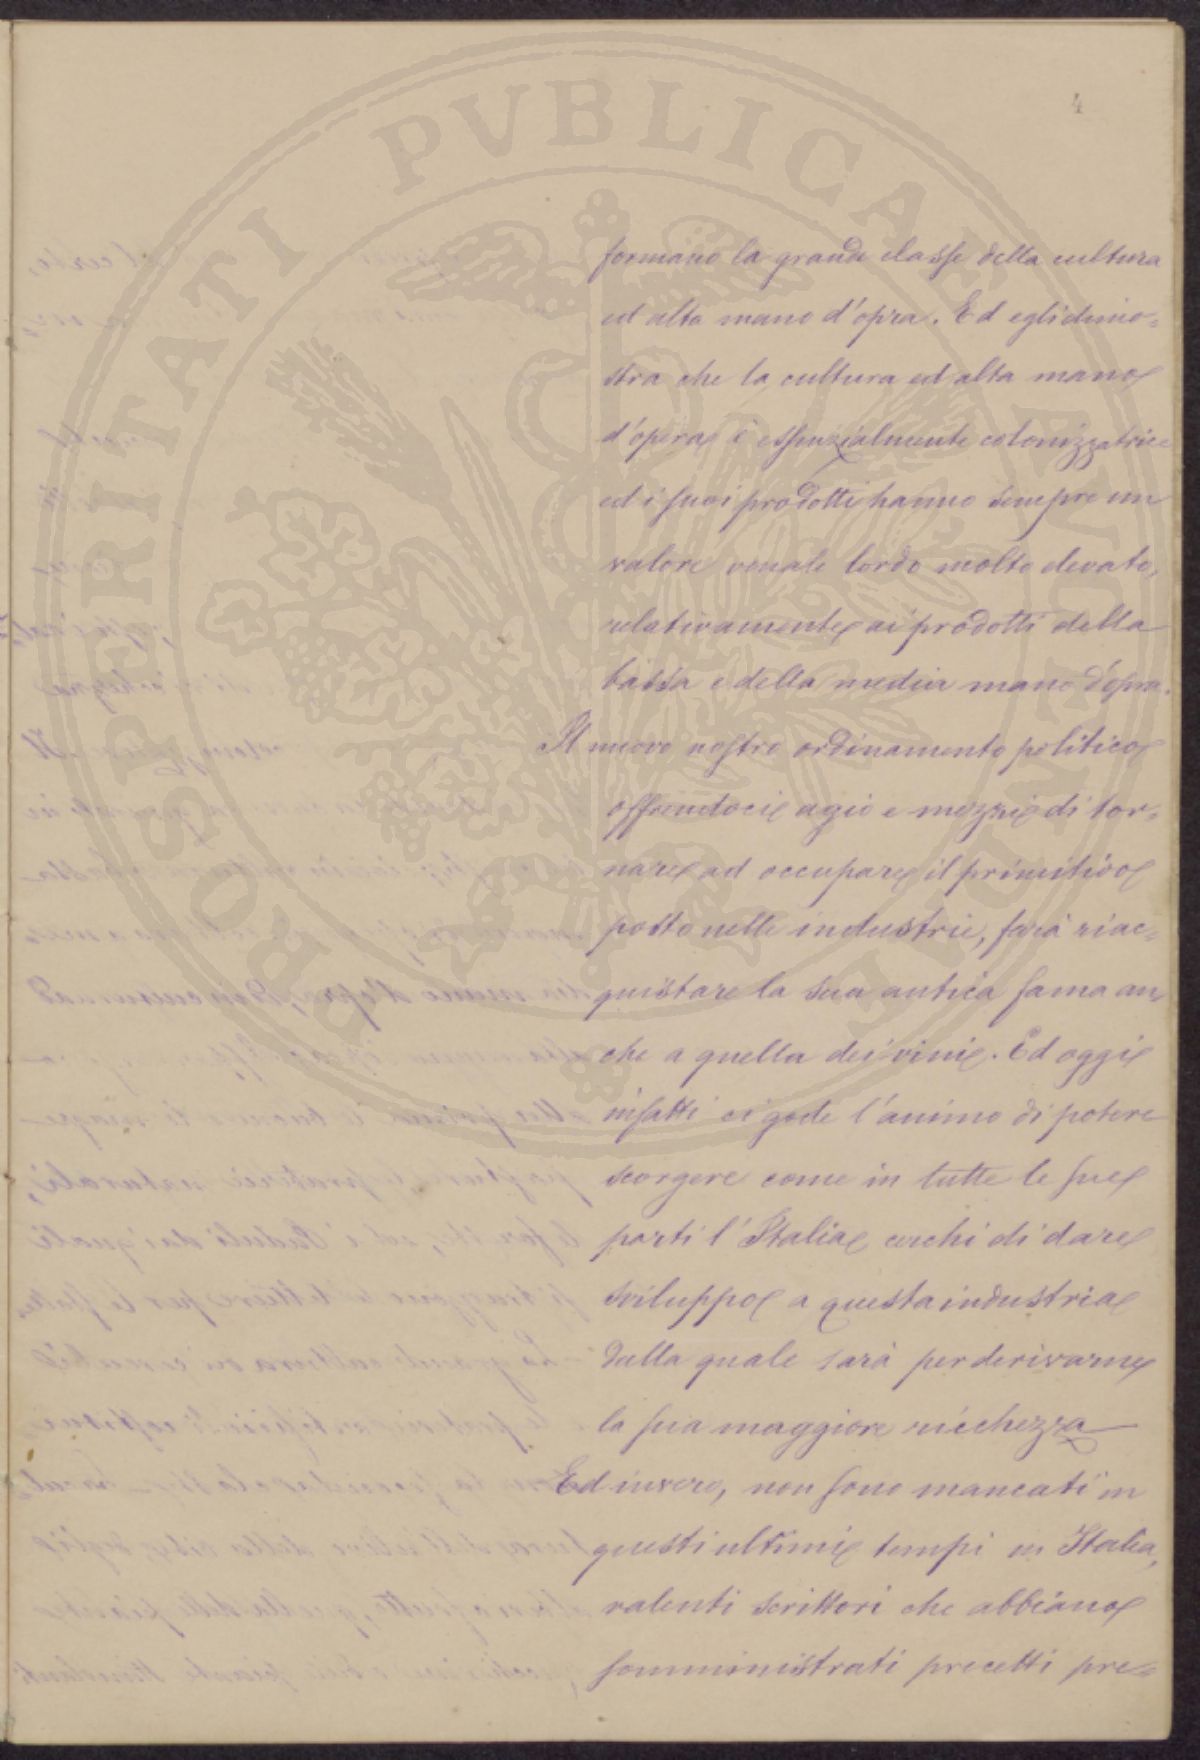 4
formano la grande classe della cultura
ad alta mano d'opra. Ed egli dimo=
stra che la cultura ad alta mano
d'opera è essenzialmente colonizzatrice
ed i suoi prodotti hanno sempre un
valore venale lordo molto elevato,
relativamente ai prodotti della
bassa e della media mano d'opra.
Il nuovo nostro ordinamento politico
offrendoci agio e mezzi di tor=
nare ad occupare il primitivo
posto nelle industrie, farà riac=
quistare la sua antica fama an=
che a quella dei vini. Ed oggi
infatti ci gode l'animo di potere
scorgere come in tutte le sue
parti l'Italia cerchi di dare
sviluppo a questa industria
dalla quale sarà per derivarne
la sua maggiore ricchezza
Ed invero, non sono mancati in
questi ultimi tempi in Italia,
valenti scrittori che abbiano
somministrati precetti pre=
PROSPERITATI PVBLICAE